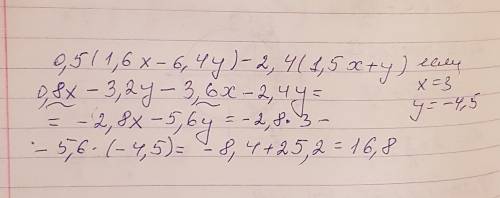 0,5(1,6x-6,4y)-2,4(1,5x+y) если
x=3
y=-4,5
0,8x-3,2y-3,6x-2,4y=
= -2,8x-5,6y=-2,8·3-
-5,6·(-4,5)= -8,4+25,2=16,8